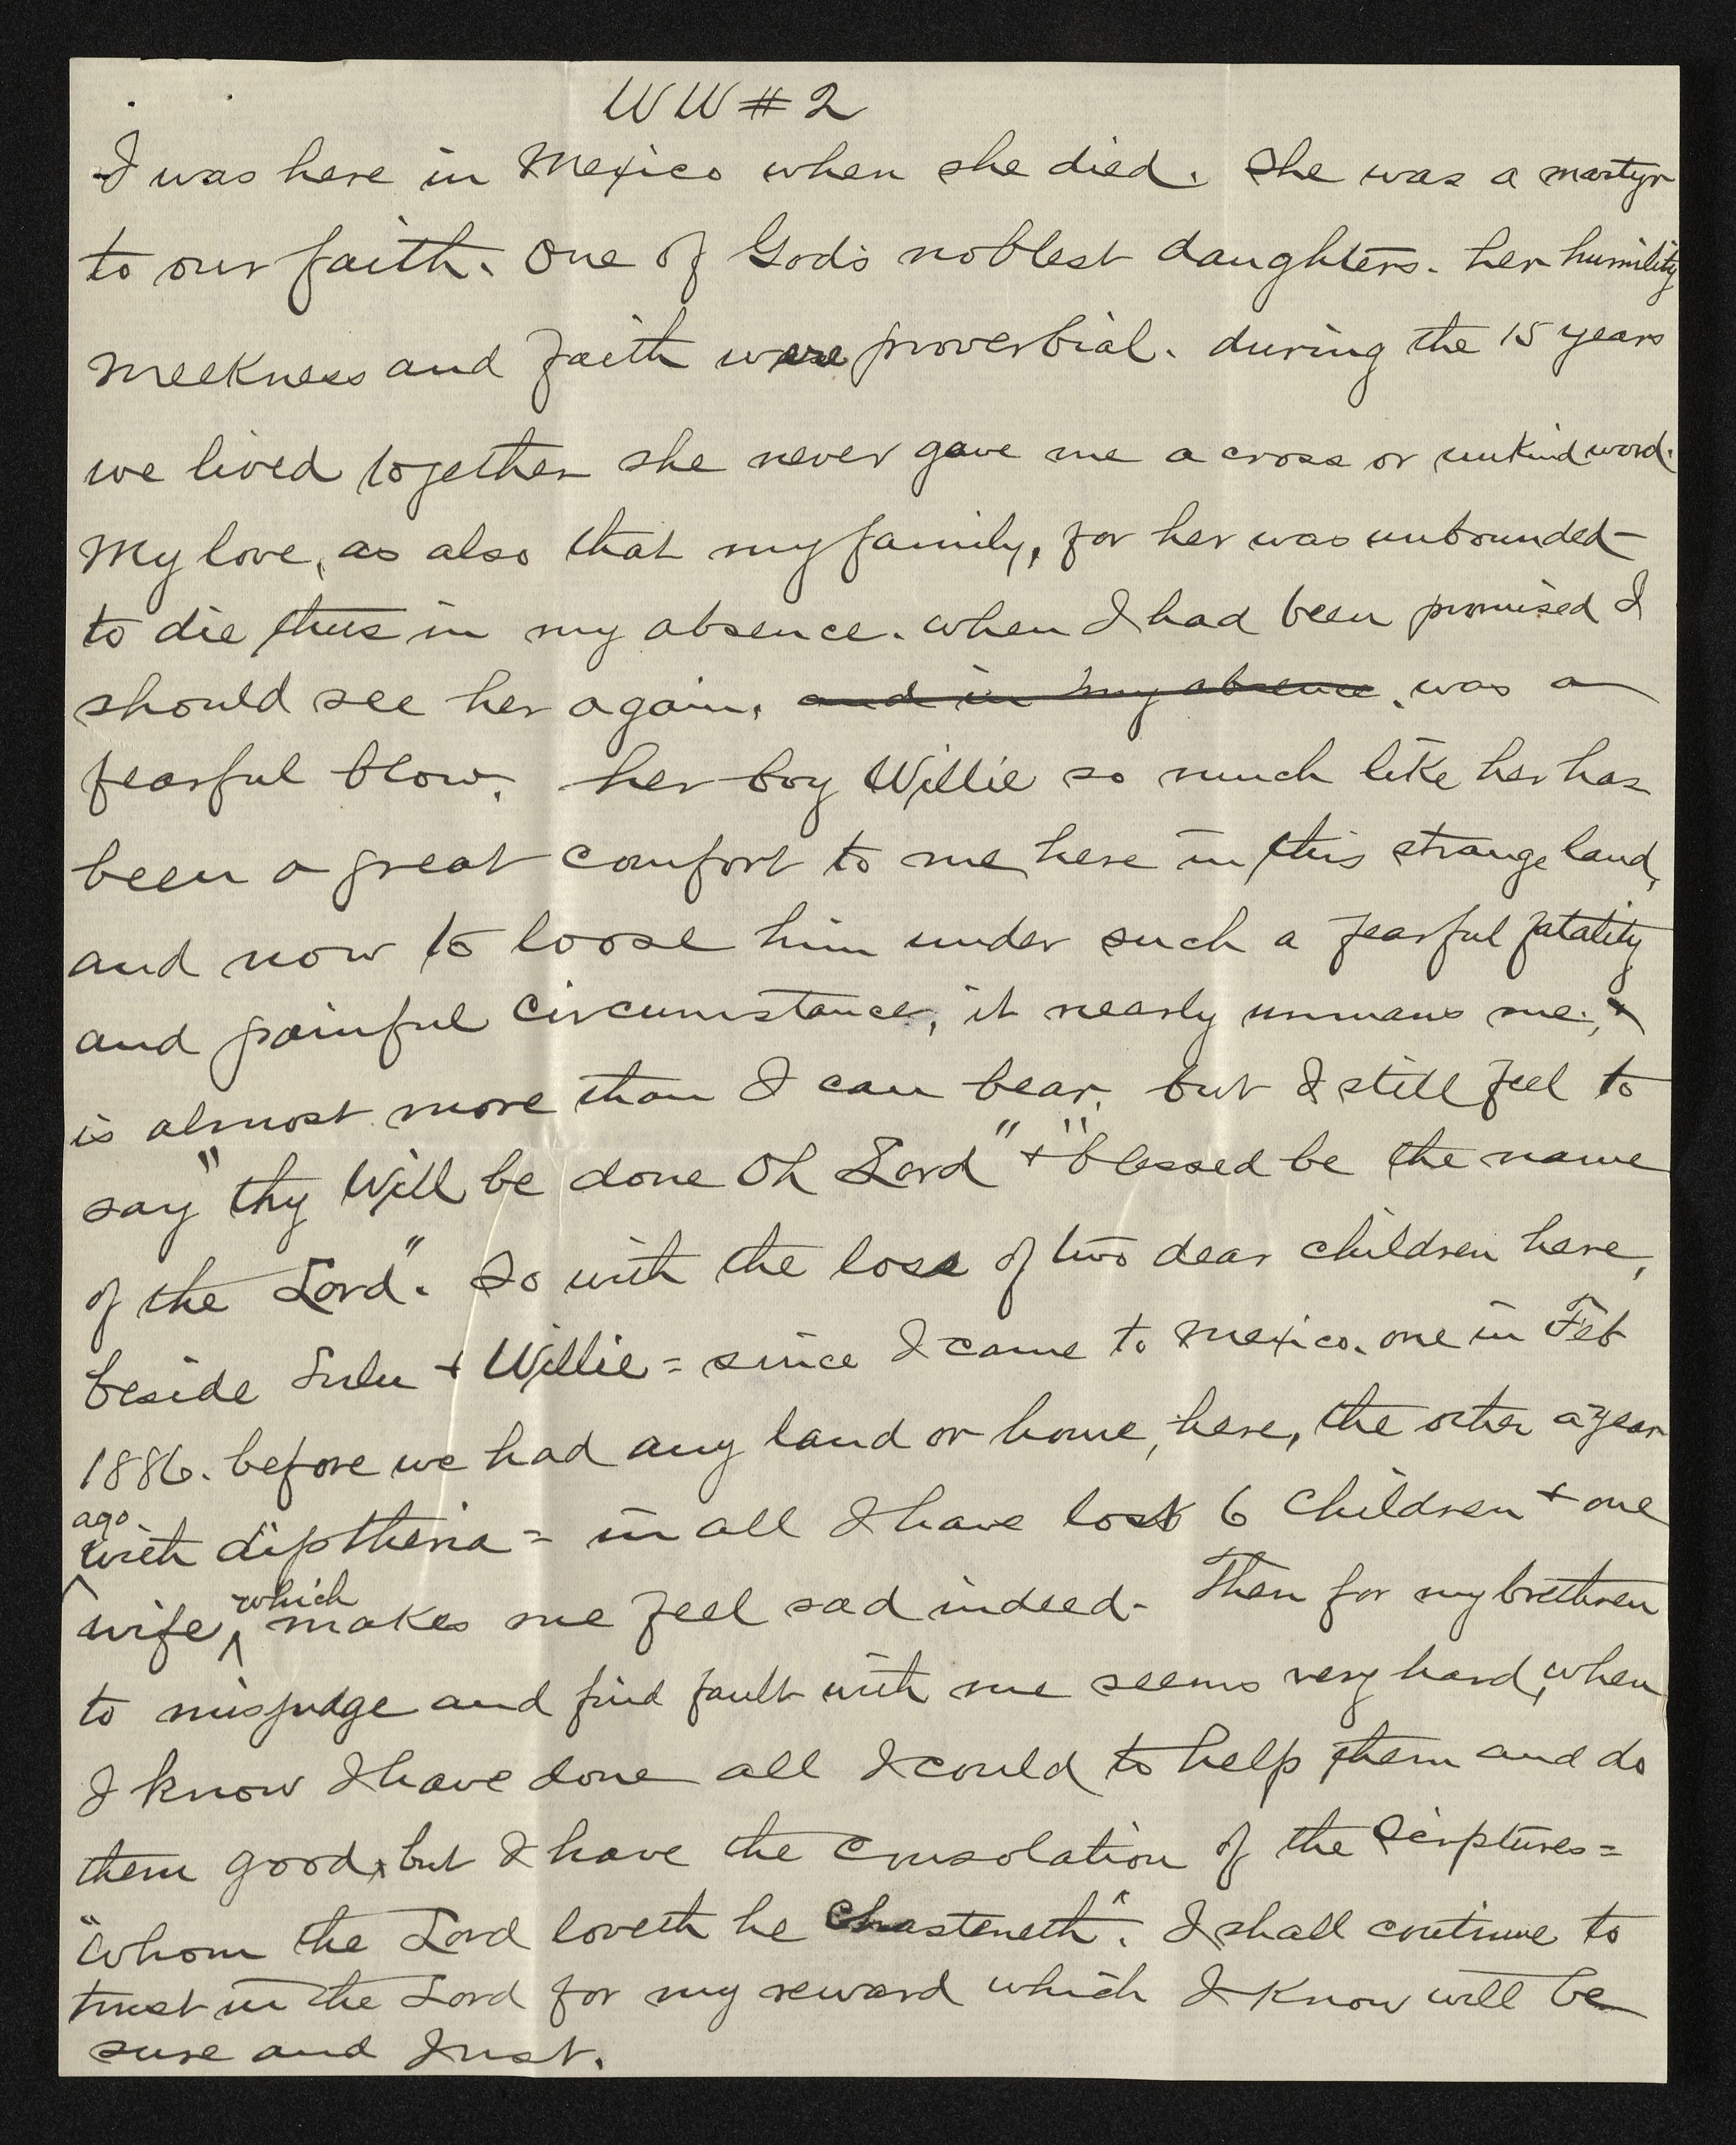 WW #2
I was here in Mexico when she died. She was a martyr
to our faith. One of God's noblest daughters. her humility
meekness and faith were proverbial. during the 15 years
we lived together she never gave me a cross or unkind word.
My love, as also that my family, for her was unbounded -
to die thus in my absence. when I had been promised I
should see her again. and in my absence. was a
fearful blow. her boy Willie so much like her has
been a great comfort to me here in this strange land,
and now to loose him under such a fearful fatality
and painful circumstance, it nearly unmans me, +
is almost more than I can bear. but I still feel to
say "thy Will be done Oh Lord" + "blessed be the name
of the Lord". So with the loss of two dear children here,
beside Lulu + Willie = since I came to Mexico. one in Feb
1886. before we had any land or home, here, the other a year
ago
with diptheria = in all I have lost 6 children + one
wife, which makes me feel sad indeed - Then for my brethren
to misjudge and find fault with me seems very hard, when
I know I have done all I could to help them and do
them good, but I have the consolation of the Scriptures =
"whom the Lord loveth he Chasteneth". I shall continue to
trust in the Lord for my reward which I know will be
sure and Just.